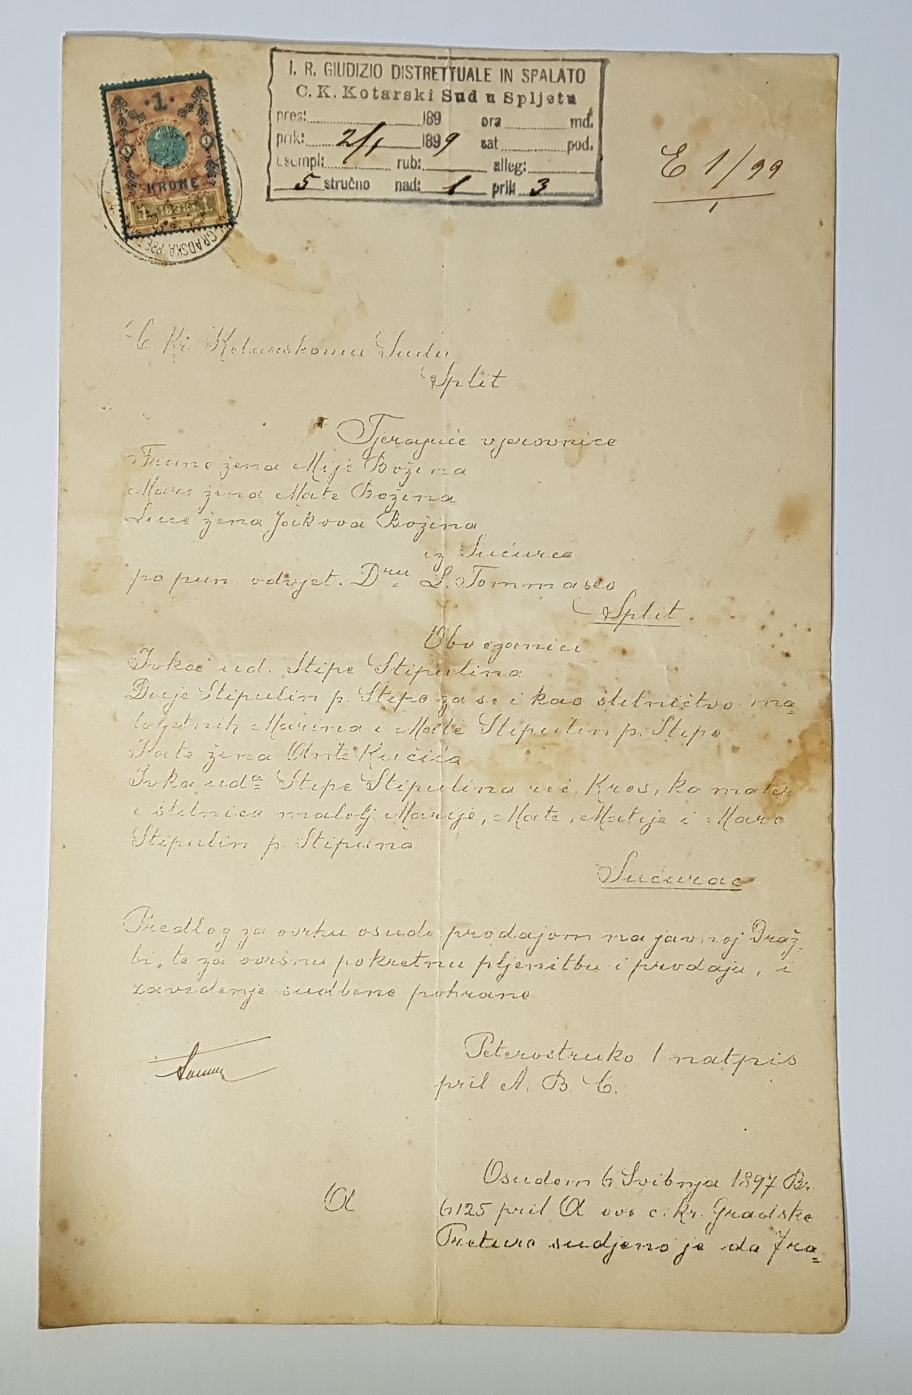 I. R. GIUDIZIO DISTRETTUALE IN SPALATO
C. K. Kotarski Sud u Spljetu
pres: 189 ora md.
prik: 2/1 1899 sat pod.
esempl: rub: alleg:
5 stručno nad: 1 pril: 3
E 1/99
1
1
KRONE
1 1898 1
GRADSKA PRE
C. Kr. Kotarskomu Sudu
Split
Tjerajuće vjerovnice
Frane žena Mije Božina
Mare žena Mate Božina
Luce žena Jakova Božina
iz Sućurca
po pun. odvjet. Dru L. Tommaseo
Split
Obvezanici
Ivka ud. Stipe Stipulina
Duje Stipulin p. Stipe za se i kao štitništvo ma=
loljetnih Marina i Mate Stipulin p. Stipe
Kate žena Ante Kučića
Ivka uda Stipe Stipulina roć. Kros, ka mater
i štitnica malolj. Marije, Mate, Matije i Mare
Stipulin p. Stipana
Sućurac
Predlog za ovrhu osude prodajom na javnoj Draž=
bi, te za ovršnu pokretnu pljenitbu i prodaju, i
zavedenje sudbene pohrane
Peterostruko 1 natpis
pril A. B. C.
A
Osudom 6 Svibnja 1897 Br.
6125 pril A ove c. kr. Gradske
Preture sudjeno je da Fra=